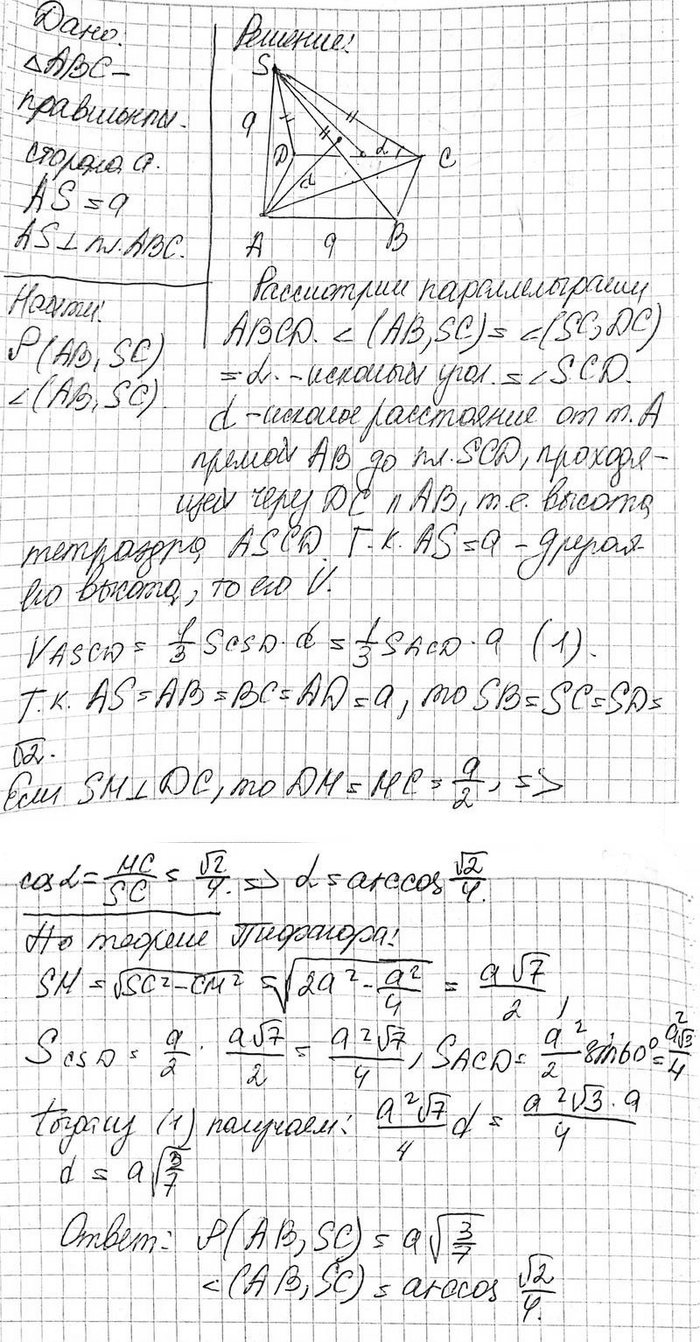 Дано:
△ABC –
правильн.
сторона a.
AS = a
AS ⊥ пл. ABC.
Найти:
ρ(AB, SC)
∠(AB, SC).
Решение:
S
a
D
α
C
d
A
a
B
Рассмотрим параллелограмм
ABCD. ∠(AB, SC) = ∠(SC, DC)
= α. – искомый угол. = ∠SCD.
d – искомое расстояние от т. A
прямой AB до пл. SCD, проходя-
щей через DC ∥ AB, т.е. высота
тетраэдра ASCD. Т.к. AS = a – другая
его высота, то его V.
V_ASCD = 1/3 S_CSD · d = 1/3 S_ACD · a (1).
Т.к. AS = AB = BC = AD = a, то SB = SC = SD =
√2.
Если SM ⊥ DC, то DM = MC = a/2, =>
cos α = MC/SC = √2/4. => α = arccos √2/4.
По теореме Пифагора:
SM = √(SC² – CM²) = √(2a² – a²/4) = a√7/2,
S_CSD = a/2 · a√7/2 = a²√7/4, S_ACD = a²/2 sin 60° = a²√3/4
Тогда из (1) получаем: a²√7/4 d = a²√3 · a/4
d = a√(3/7)
Ответ: ρ(AB, SC) = a√(3/7)
∠(AB, SC) = arccos √2/4.